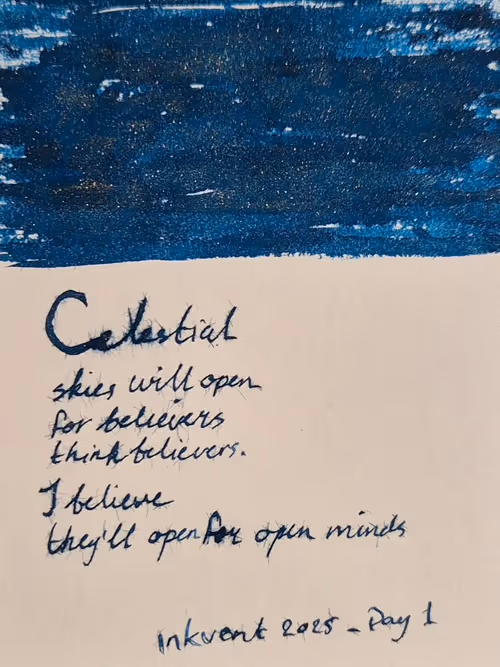 Celestial
skies will open
for believers
think believers.
I believe
they'll open for open minds
Inkvent 2025 - Day 1